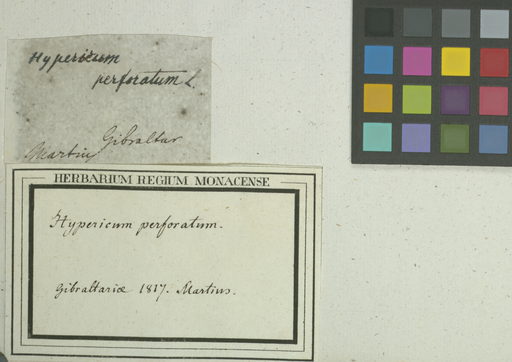 Hypericum
perforatum L.
Gibraltar
Martius
HERBARIUM REGIUM MONACENSE
Hypericum perforatum.
Gibraltariæ 1817. Martius.